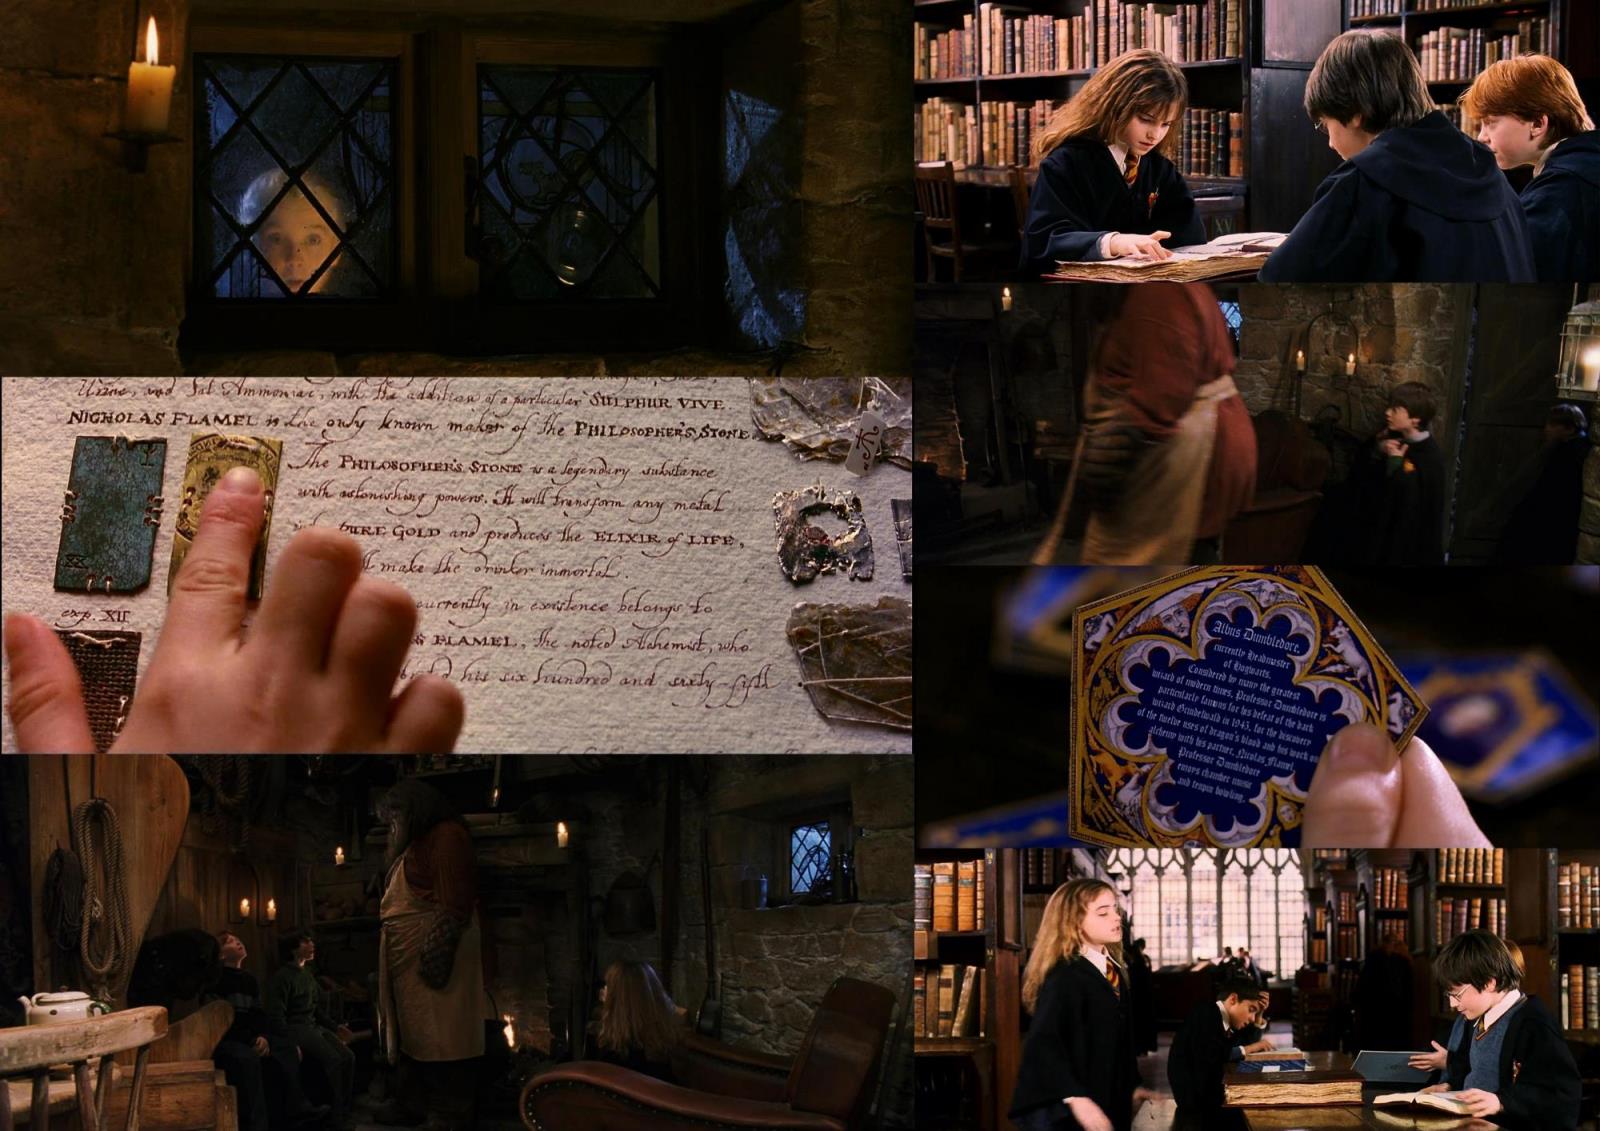 Urine, and Sal Ammoniac, with the addition of a particular SULPHUR VIVE.
NICHOLAS FLAMEL is the only known maker of the PHILOSOPHER'S STONE.
The PHILOSOPHER'S STONE is a legendary substance
with astonishing powers. It will transform any metal
PURE GOLD and produces the ELIXIR of LIFE,
make the drinker immortal.
currently in existence belongs to
FLAMEL, the noted Alchemist, who
his six hundred and sixty-fifth
exp. XII
Albus Dumbledore,
currently Headmaster
of Hogwarts.
Considered by many the greatest
wizard of modern times, Professor Dumbledore is
particularly famous for his defeat of the dark
wizard Grindelwald in 1945, for the discovery
of the twelve uses of dragon's blood and his work on
alchemy with his partner, Nicolas Flamel.
Professor Dumbledore
enjoys chamber music
and tenpin bowling.